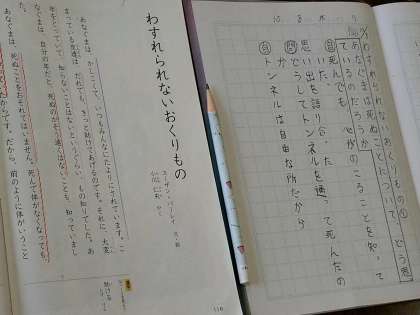 わすれられないおくりもの
スーザン・バーレイ 文・絵
あなぐまは、かしこくて、いつもみんなにたよりにされています。こ
まっている友達は、だれでも、きっと助けてあげるのです。それに、大変
年をとっていて、知らないことはないというぐらい、もの知りでした。あ
なぐまは、自分の年だと、死ぬのがそう遠くはないことも、知っていまし
あなぐまは、死ぬことをおそれてはいません。死んで体がなくなっても、
からです。だから、前のように体がいうこと
116
わすれられないおくりもの①
あなぐまは死ぬことについて、どう思
ているのだろうか。
死んでも心がのこることを知って
いた。
思い出を語り合った
どうしてトンネルを通って死んだの
か
トンネルは自由な所だから